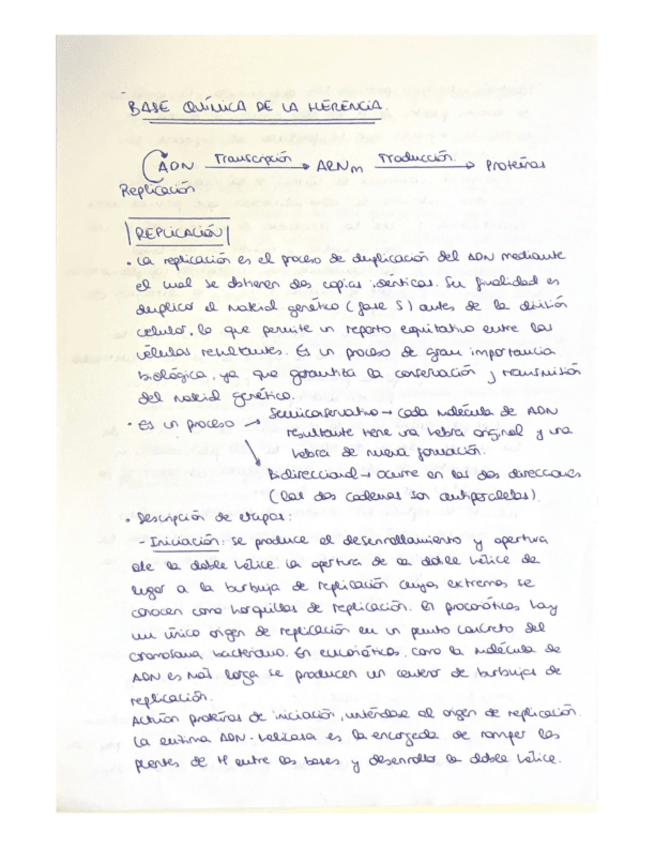 BASE QUÍMICA DE LA HERENCIA.
ADN Transcripción ARNm Traducción Proteínas
Replicación
REPLICACIÓN
• La replicación es el proceso de duplicación del ADN mediante
el cual se obtienen dos copias idénticas. Su finalidad es
duplicar el material genético (fase S) antes de la división
celular, lo que permite un reparto equitativo entre las
células resultantes. Es un proceso de gran importancia
biológica, ya que garantiza la conservación y transmisión
del material genético.
• Es un proceso → Semiconservativo → cada molécula de ADN
resultante tiene una hebra original y una
hebra de nueva formación.
Bidireccional → ocurre en las dos direcciones
(las dos cadenas son antiparalelas).
• Descripción de etapas:
- Iniciación: se produce el desenrollamiento y apertura
de la doble hélice. La apertura de la doble hélice da
lugar a la burbuja de replicación cuyos extremos se
conocen como horquillas de replicación. En procarióticas hay
un único origen de replicación en un punto concreto del
cromosoma bacteriano. En eucarióticas, como la molécula de
ADN es más larga se producen un centenar de burbujas de
replicación.
Actúan proteínas de iniciación, uniéndose al origen de replicación.
La enzima ADN-helicasa es la encargada de romper los
puentes de H entre las bases y desenrollar la doble hélice.